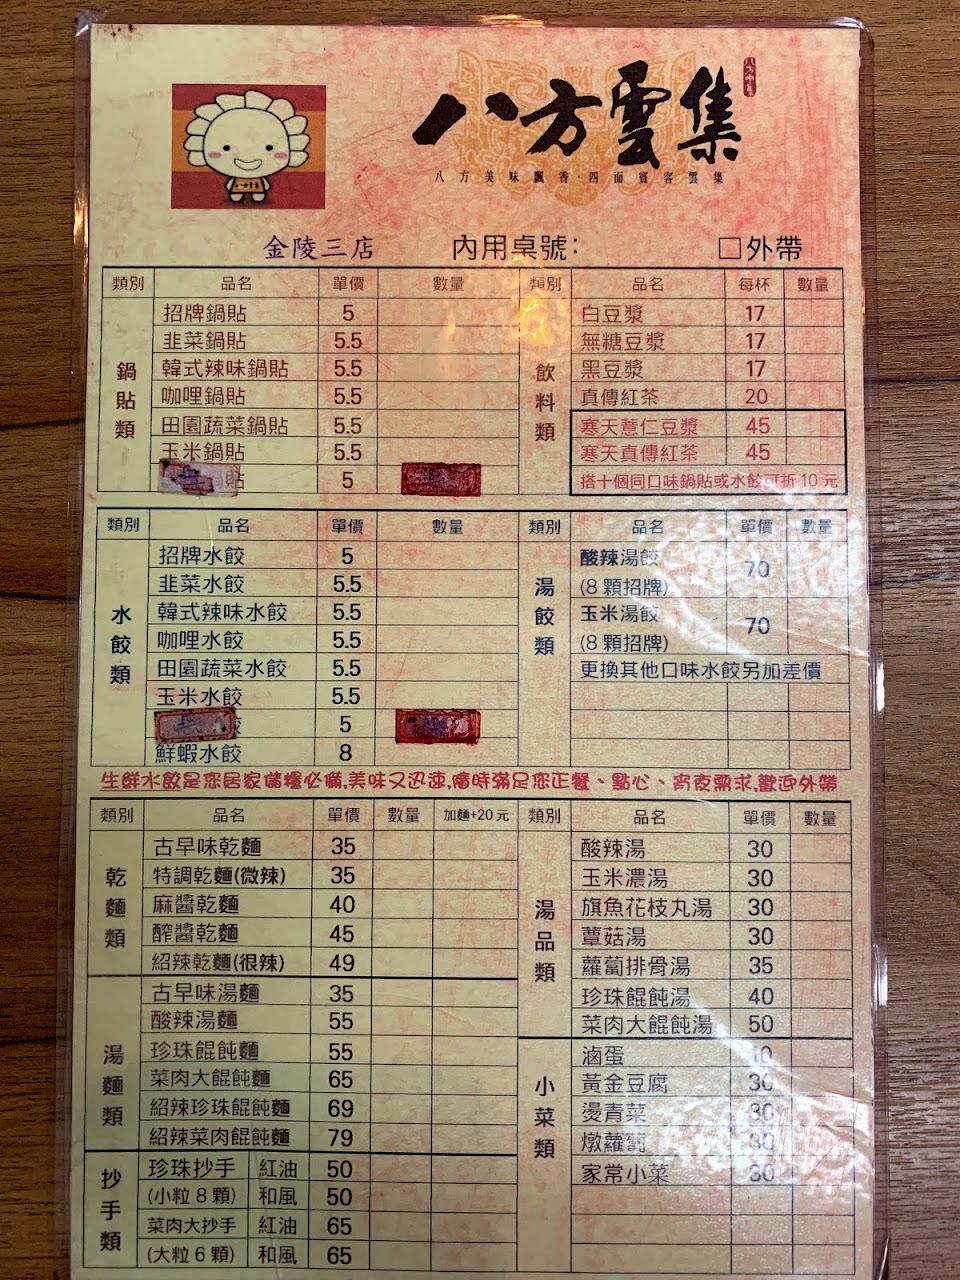 八方雲集
八方雲集
八方美味飄香·四面賓客雲集
八方雲集
金陵三店 內用桌號： □外帶
類別 品名 單價 數量 類別 品名 每杯 數量
鍋貼類
招牌鍋貼 5
韭菜鍋貼 5.5
韓式辣味鍋貼 5.5
咖哩鍋貼 5.5
田園蔬菜鍋貼 5.5
玉米鍋貼 5.5
貼 5
飲料類
白豆漿 17
無糖豆漿 17
黑豆漿 17
真傳紅茶 20
寒天薏仁豆漿 45
寒天真傳紅茶 45
搭十個同口味鍋貼或水餃可折10元
類別 品名 單價 數量 類別 品名 單價 數量
水餃類
招牌水餃 5
韭菜水餃 5.5
韓式辣味水餃 5.5
咖哩水餃 5.5
田園蔬菜水餃 5.5
玉米水餃 5.5
餃 5
鮮蝦水餃 8
湯餃類
酸辣湯餃 70
(8顆招牌)
玉米湯餃 70
(8顆招牌)
更換其他口味水餃另加差價
生鮮水餃是您居家儲糧必備,美味又迅速,隨時滿足您正餐、點心、宵夜需求,歡迎外帶
類別 品名 單價 數量 加麵+20元 類別 品名 單價 數量
乾麵類
古早味乾麵 35
特調乾麵(微辣) 35
麻醬乾麵 40
醡醬乾麵 45
紹辣乾麵(很辣) 49
湯麵類
古早味湯麵 35
酸辣湯麵 55
珍珠餛飩麵 55
菜肉大餛飩麵 65
紹辣珍珠餛飩麵 69
紹辣菜肉餛飩麵 79
抄手類
珍珠抄手 紅油 50
(小粒8顆) 和風 50
菜肉大抄手 紅油 65
(大粒6顆) 和風 65
湯品類
酸辣湯 30
玉米濃湯 30
旗魚花枝丸湯 30
蕈菇湯 30
蘿蔔排骨湯 35
珍珠餛飩湯 40
菜肉大餛飩湯 50
小菜類
滷蛋 10
黃金豆腐 30
燙青菜 30
燉蘿蔔 30
家常小菜 30